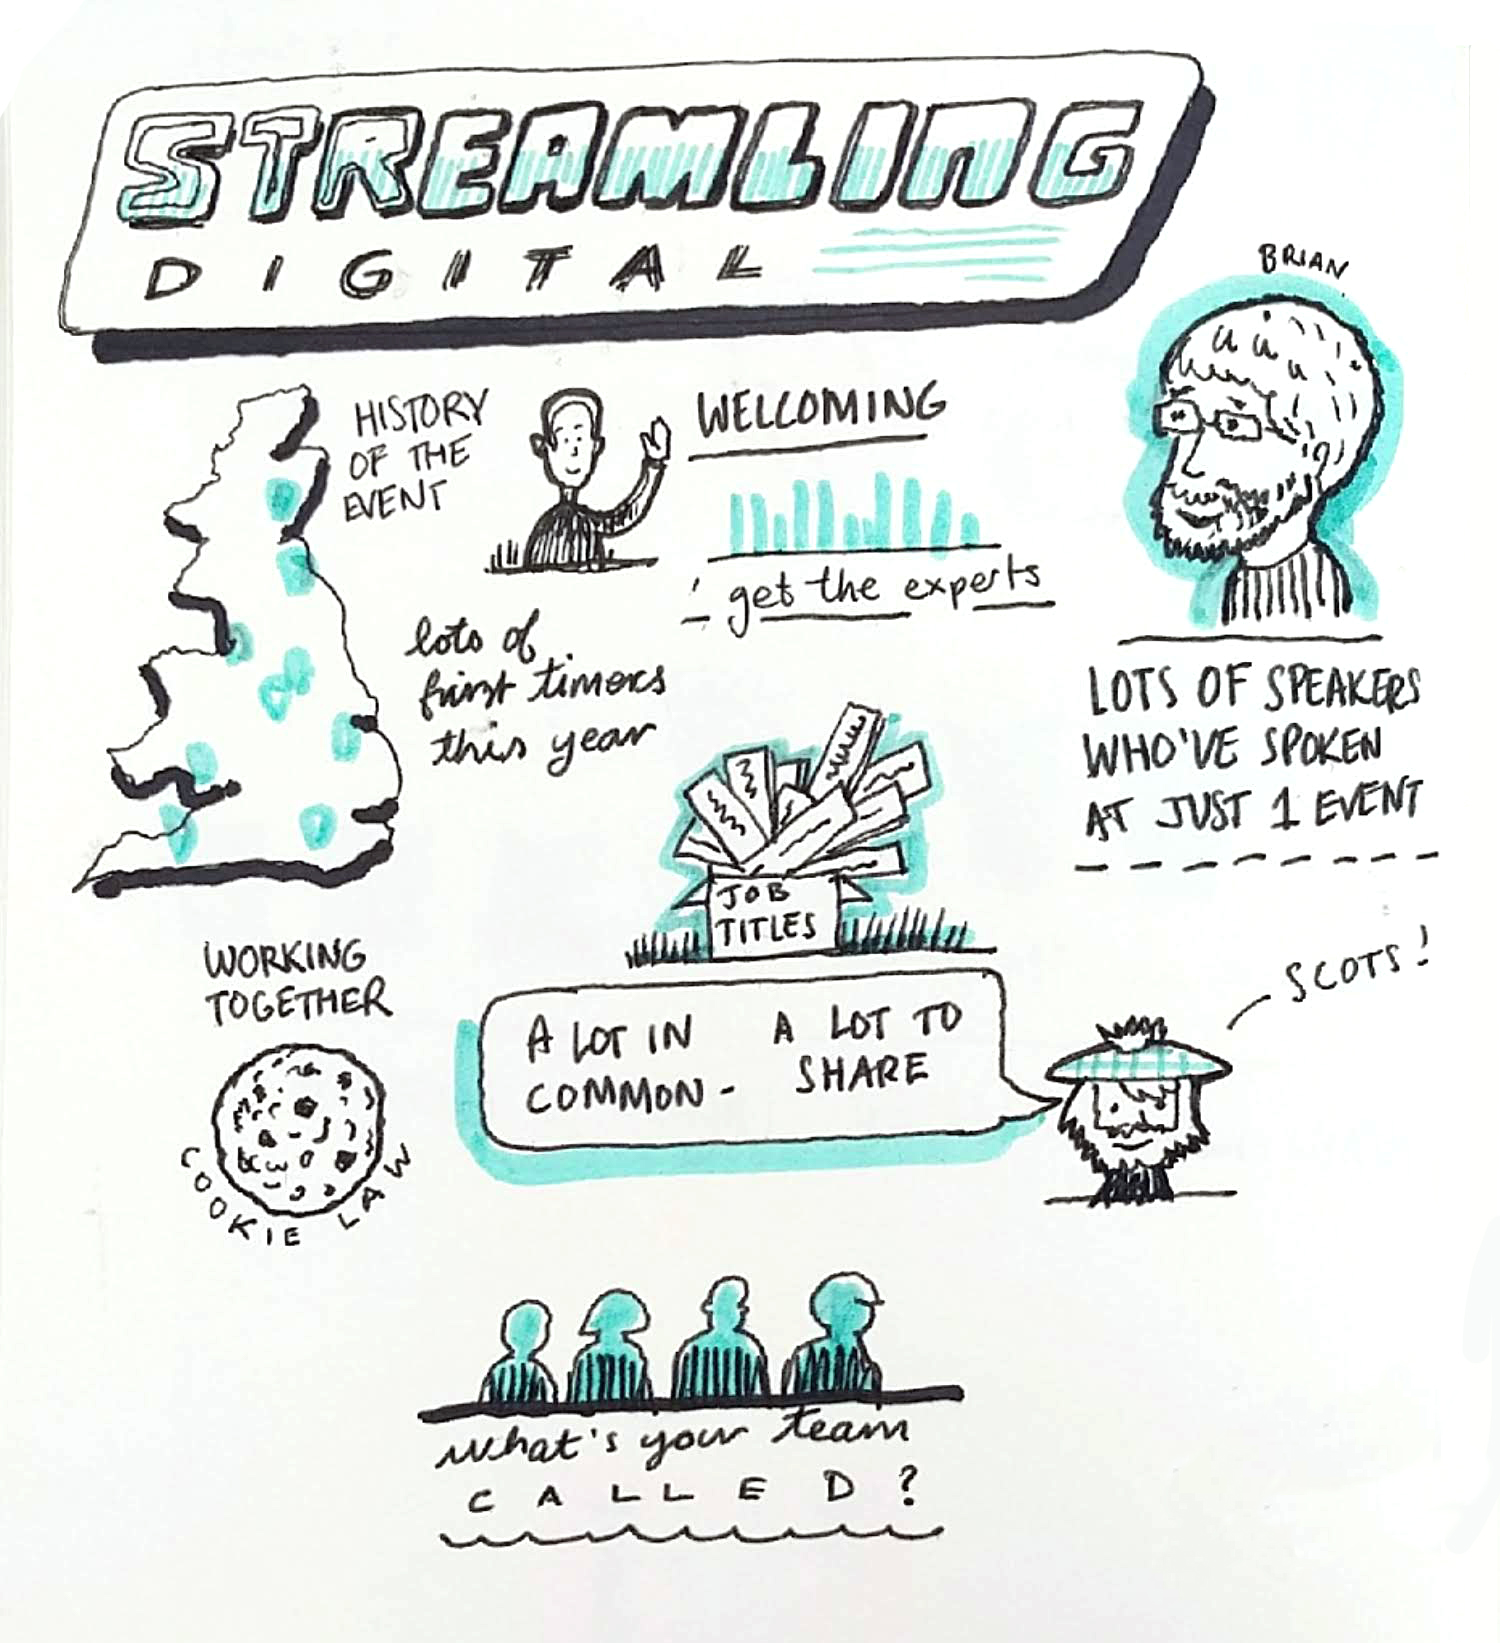 STREAMLING
DIGITAL
BRIAN
HISTORY
OF THE
EVENT
WELCOMING
! get the experts
lots of
first timers
this year
LOTS OF SPEAKERS
WHO'VE SPOKEN
AT JUST 1 EVENT
JOB
TITLES
WORKING
TOGETHER
COOKIE LAW
A LOT IN
COMMON -
A LOT TO
SHARE
SCOTS!
what's your team
CALLED?